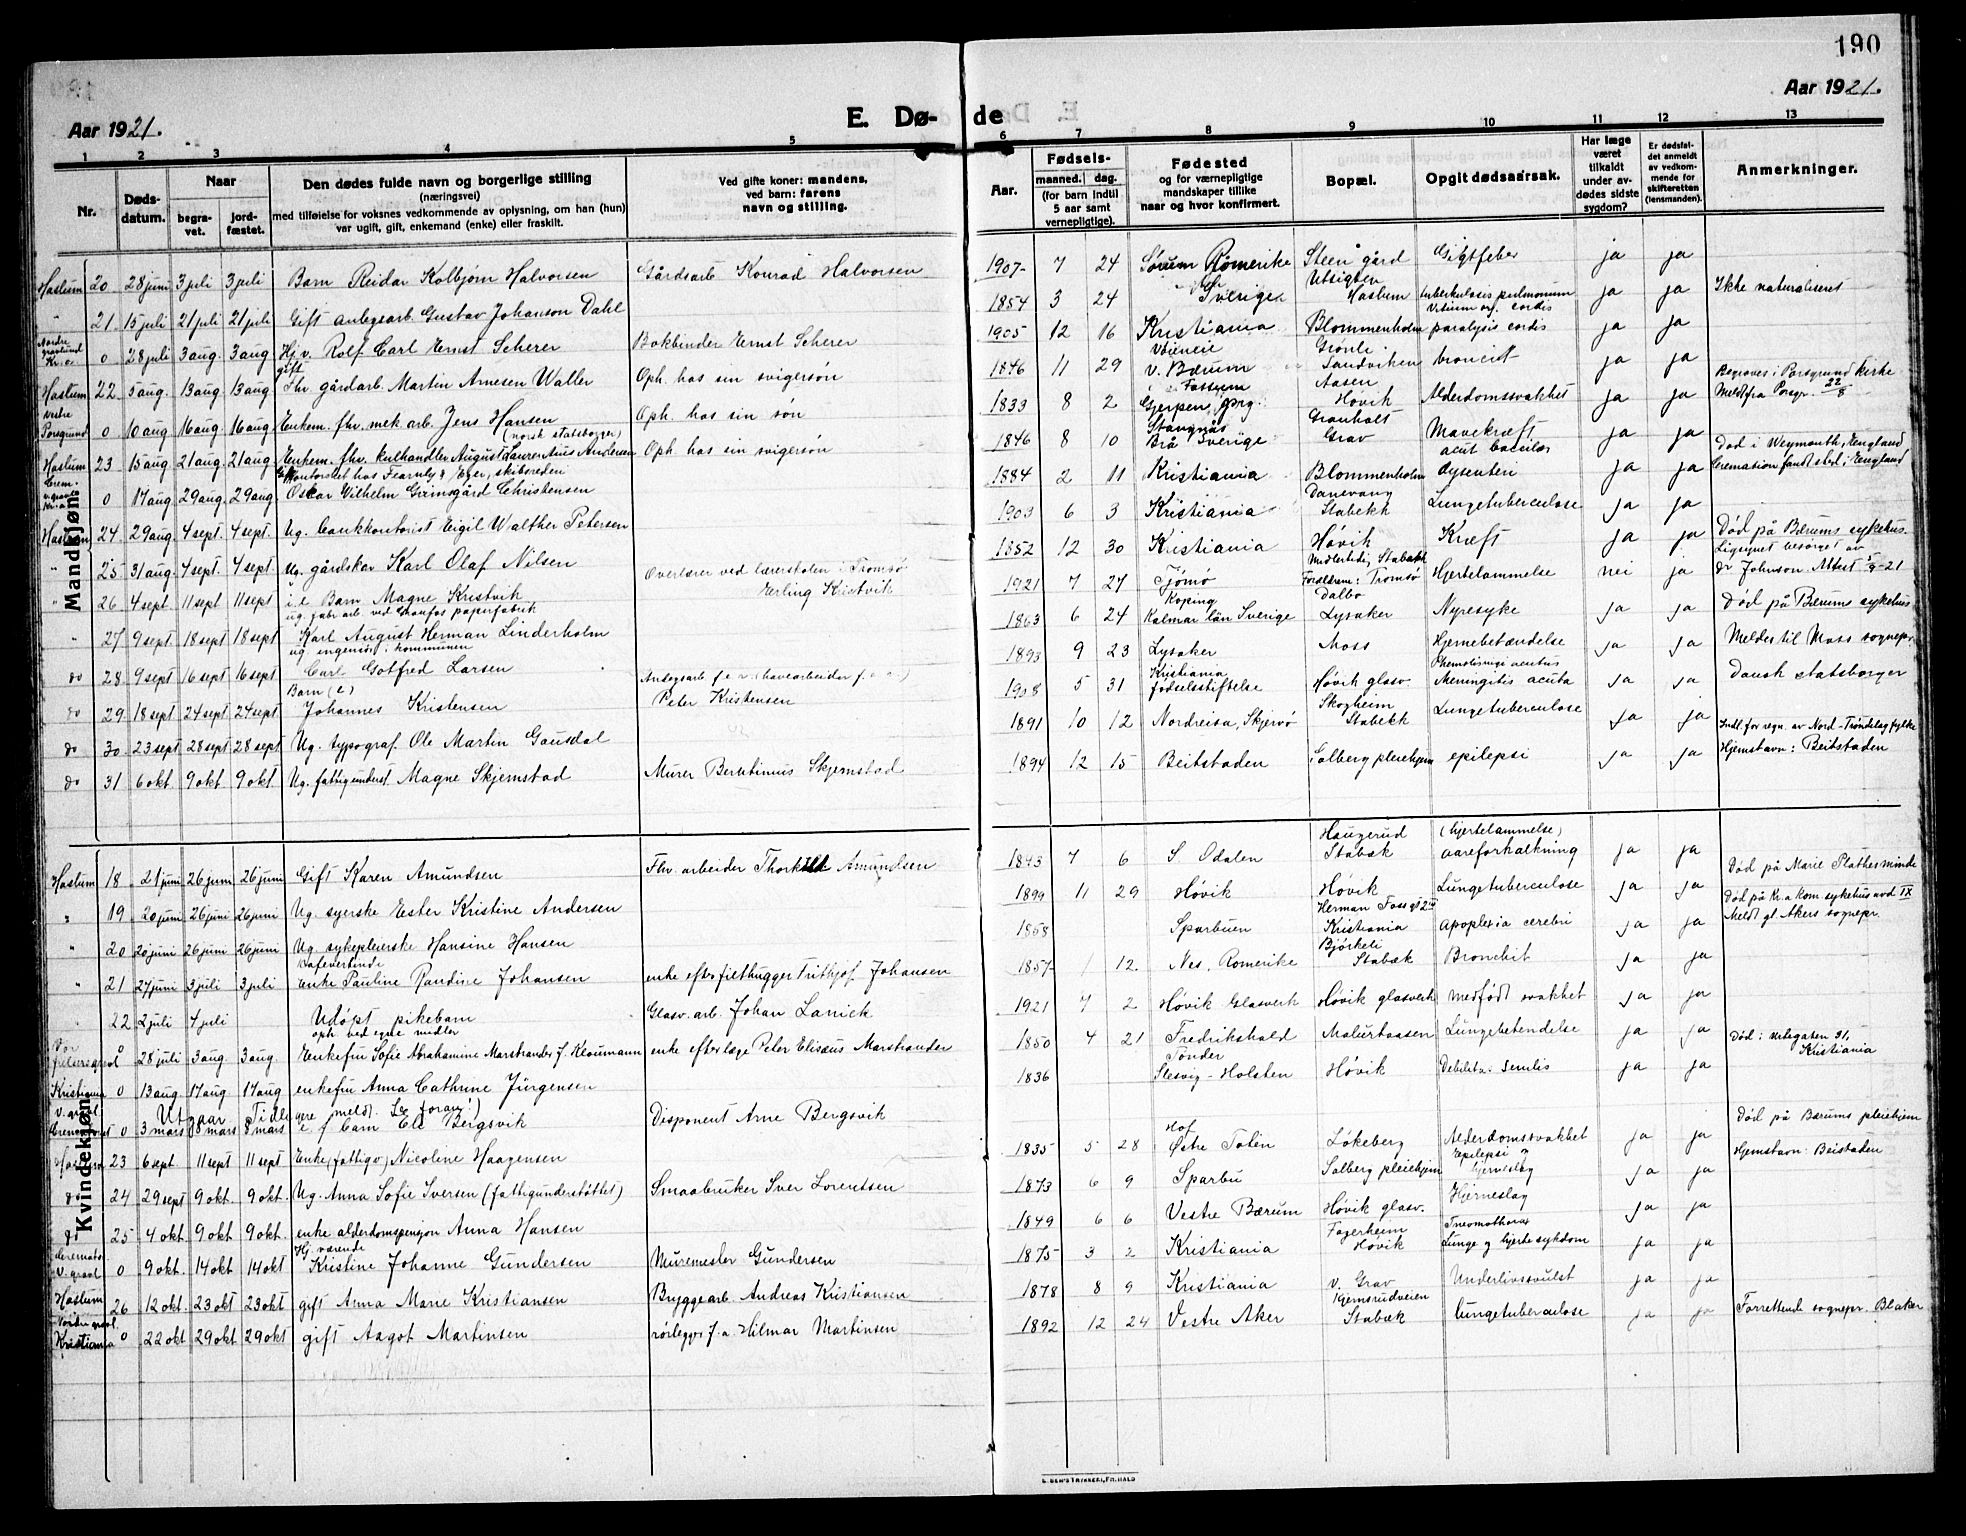 190
Aar 1921.
E. Dø-
de
Aar 1921.
1 2 3 4 5 6 7 8 9 10 11 12 13
Nr.
Døds-
datum.
Naar
begra-
vet.
jord-
fæstet.
Den dødes fulde navn og borgerlige stilling
(næringsvei)
med tilføielse for voksnes vedkommende av oplysning, om han (hun)
var ugift, gift, enkemand (enke) eller fraskilt.
Ved gifte koner: mandens,
ved barn: farens
navn og stilling.
Aar.
Fødsels-
maaned. dag.
(for barn indtil
5 aar samt
vernepligtige).
Fødested
og for værnepligtige
mandskaper tillike
naar og hvor konfirmert.
Bopæl.
Opgit dødsaarsak.
Har læge
været
tilkaldt
under av-
dødes sidste
sygdom?
Er dødsfal-
det anmeldt
av vedkom-
mende for
skifteretten
(lensmanden).
Anmerkninger.
Mandkjøn.
Haslum 20 28 juni 3 juli 3 juli Barn Reidar Kolbjørn Halvorsen Gårdsarb Konrad Halvorsen 1907 7 24 Sørum Romerike Steen gård Gigtfeber ja ja
" 21 15 juli 21 juli 21 juli Gift anlegsarb. Gustav Johanson Dahl 1854 3 24 Sverige Utsigten Haslum tuberkulosis pulmonum Vitium org. cordis ja ja Ikke naturaliseret
Nordre gravlund Kr.a 0 28 juli 3 aug. 3 aug Hjv. Rolf Carl Ernst Scherer Bokbinder Ernst Scherer 1905 12 16 Kristiania Blommenholm paralysis cordis ja ja
Haslum 22 5 aug. 13 aug 13 aug gift Fhv gårdarb. Martin Arnesen Waller Oph. hos sin svigersøn 1846 11 29 V. Bærum Grønli Sandviken broncit ja ja
Vestre Porsgrund 0 10 aug 16 aug. 16 aug Enkem. fhv. mek. arb. Jens Hansen Oph. hos sin søn 1833 8 2 Gjerpen, prg. Aasen Høvik Alderdomssvakhet ja ja Begraves i Porsgrund kirke Meldt fra Porsgr. 22/8
Haslum 23 15 aug 21 aug. 21 aug Enkem. fhv. kulhandler August Laurentius Andersen (norsk statsborger) Oph hos sin svigersøn 1846 8 10 Stangnäs Brå Sverige Granholt Grav Mavekræft ja ja
Crem. v. gravl. Kr.a 0 17 aug. 29 aug. 29 aug. Gift Kontorchef hos Fearnly & Eger, skibsrederi Oskar Wilhelm Grimsgård Christensen 1884 2 11 Kristiania Blommenholm acut bacillær dysenteri ja ja Død i Weymouth, England Cremation fandt sted i England
Haslum 24 29 aug. 4 sept. 4 sept. Ug. bankkontorist Eigil Walther Petersen 1903 6 3 Kristiania Danevang Stabekk Lungetuberculose ja ja
" 25 31 aug. 4 sept. 4 sept. Ug. gårdskar Karl Olaf Nilsen 1852 12 30 Kristiania Høvik Kræft ja ja Død på Bærums sykehus.
" 26 4 sept. 11 sept 11 sept i.e. Barn Magne Kristvik Overlærer ved lærerskolen i Tromsø Erling Kristvik 1921 7 27 Tjömø Midlertidig Stabækk Foreldrene: Tromsø Hjertelammelse nei ja Ligsynet besørget av dr Johnson Attest 5/9-21
" 27 9 sept. 18 sept 18 sept ug. fabr arb. ved Granfos papirfabrik Karl August Herman Linderholm 1863 6 24 Köping Kalmar län Sverige Dalbo Lysaker Nyresyke ja ja Død på Bærums sykehus
do 28 9 sept. 16 sept 16 sept. ug. ingeniør i kommunen Carl Gotfred Larsen 1893 9 23 Lysaker Moss Hjernebetændelse ja ja Meldes til Moss sognepr.
do 29 18 sept 24 sept 24 sept Barn (e) Johannes Kristensen Peter Kristensen 1908 5 31 Kristiania fødselsstiftelse Høvik glasv. Meningitis acuta ja ja Dansk statsborger
do 30 23 sept 28 sept 28 sept Ug. typograf. Ole Martin Gausdal 1891 10 12 Nordreisa, Skjervø Skogheim Stabekk Lungetuberculose ja ja
do 31 6 okt 9 okt 9 okt Ug. fattigunderst Magne Skjemstad Murer Berntinius Skjemstad 1894 12 15 Beitstaden Solberg pleiehjem epilepsi ja ja Indl. for regn. av Nord-Trøndelag fylke Hjemstavn: Beitstaden
Kvindekjøn.
Haslum 18 21 juni 26 juni 26 juni Gift Karen Amundsen Fhv. arbeider Thorkild Amundsen 1843 7 6 S. Odalen Haugerud Stabæk (hjertelammelse) aareforkalkning ja ja
" 19 20 juni 26 juni 26 juni Ug. syerske Ester Kristine Andersen 1899 11 29 Høvik Høvik Lungetuberculose ja ja Død på Marie Plathes minde
" 20 20 juni 26 juni 26 juni Ug. sykepleierske Hansine Hansen 1858 Sparbuen Herman Foss gt 2 Kristiania apoplexia cerebri ja ja Død på Kr.a Kom. sykehus avd IX Meldt gl. Akers sognepr.
" 21 27 juni 3 juli 3 juli kafevertinde Enke Pauline Randine Johansen enke efter filthugger Frithjof Johansen 1857 1 12. Nes, Romerike Bjørkeli Stabæk Bronchit ja ja
" 22 2 juli 4 juli Udöpt pikebarn Glasv. arb. Johan Lanick 1921 7 2 Høvik Glasverk Høvik glasverk medfödt svakhet ja ja
Vor frelsers gravl 0 28 juli 3 aug. 3 aug. oph ved egne midler Enkefru Sofie Abrahamine Marstrander f. Kloumann enke efter læge Peter Elisæus Marstrander 1850 4 21 Fredrikshald Malurtaasen Lungebetendelse ja ja Død i Uelegaten 31, Kristiania
Kristiania v. gravl 0 13 aug. 17 aug 17 aug enkefru Anna Cathrine Jürgensen 1836 Tønder Slesvig-Holsten Høvik Debilitas senilis ja ja
Ut gaar Tidligere meldt. Se foran!)
0 3 mars 8 mars 8 mars e. f barn Else Bergsvik Disponent Arne Bergsvik
Haslum 23 6 sept 11 sept 11 sept Enke (fattigv) Nicoline Haagensen 1835 5 28 Hof Østre Toten Løkeberg Alderdomssvakhet ja ja Død på Bærums pleiehjem
do 24 29 sept 9 okt. 9 okt. Ug. Anna Sofie Iversen (fattigunderstøttet) Smaabruker Iver Lorentsen 1873 6 9 Sparbu Solberg pleiehjem Epilepsi og hjerneslag ja ja Hjemstavn: Beistaden
do 25 4 okt. 9 okt. 9 okt. enke alderdomspensjon Anna Hansen 1849 6 6 Vestre Bærum Høvik glasv. Hjerneslag ja ja
v. gravl 0 9 okt. 14 okt 14 okt Hj værende Kristine Johanne Gundersen Muremester Gundersen 1875 3 2 Kristiania Fagerheim Høvik Pneumothorax Lunge og hjerte sykdom ja ja
Haslum 26 12 okt. 23 okt 23 okt gift Anna Marie Kristiansen Bryggearb. Andreas Kristiansen 1878 8 9 Kristiania v. Grav Underlivssvulst ja ja
Nordre gravl. Kristiania 0 22 okt 29 okt 29 okt gift Aagot Martinsen rørlegger f. a Hilmar Martinsen 1892 12 24 Vestre Aker Kjemsrudveien Stabæk lungetuberculose ja ja Forrettende sognepr. Blaker